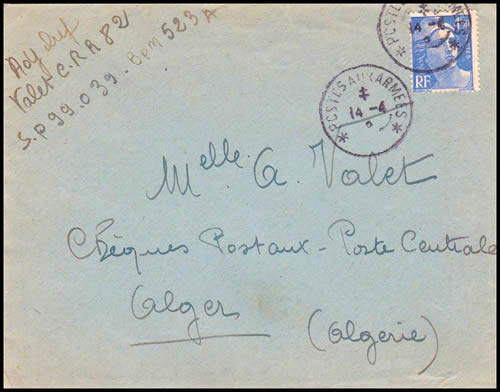 Adj chef
Valet C.R.A 82
S.P 99.039. Bpm 523 A
POSTES AUX ARMEES
14-4
RF
POSTES AUX ARMEES
14-4
Melle A. Valet
Chèques Postaux - Poste Centrale
Alger
(Algerie)